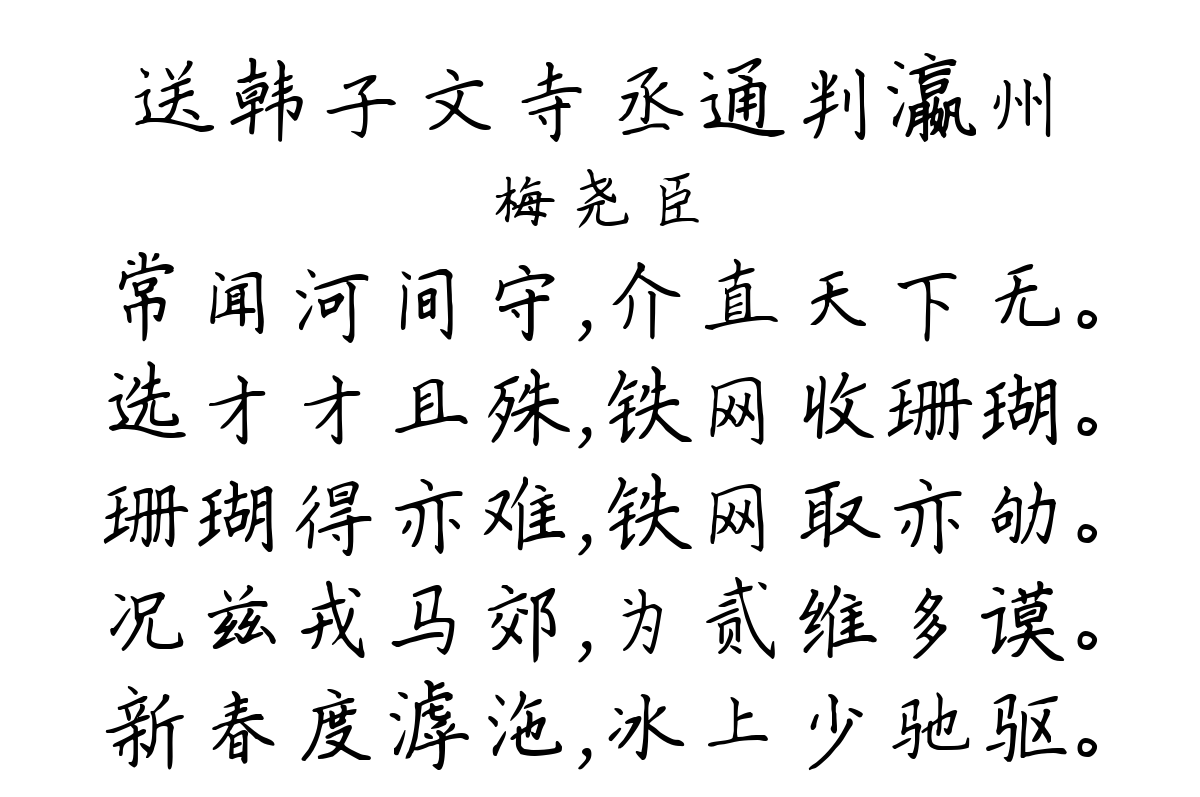 送韩子文寺丞通判瀛州
梅尧臣
常闻河间守,介直天下无。
选才才且殊,铁网收珊瑚。
珊瑚得亦难,铁网取亦劬。
况兹戎马郊,为贰维多谟。
新春度滹沲,冰上少驰驱。